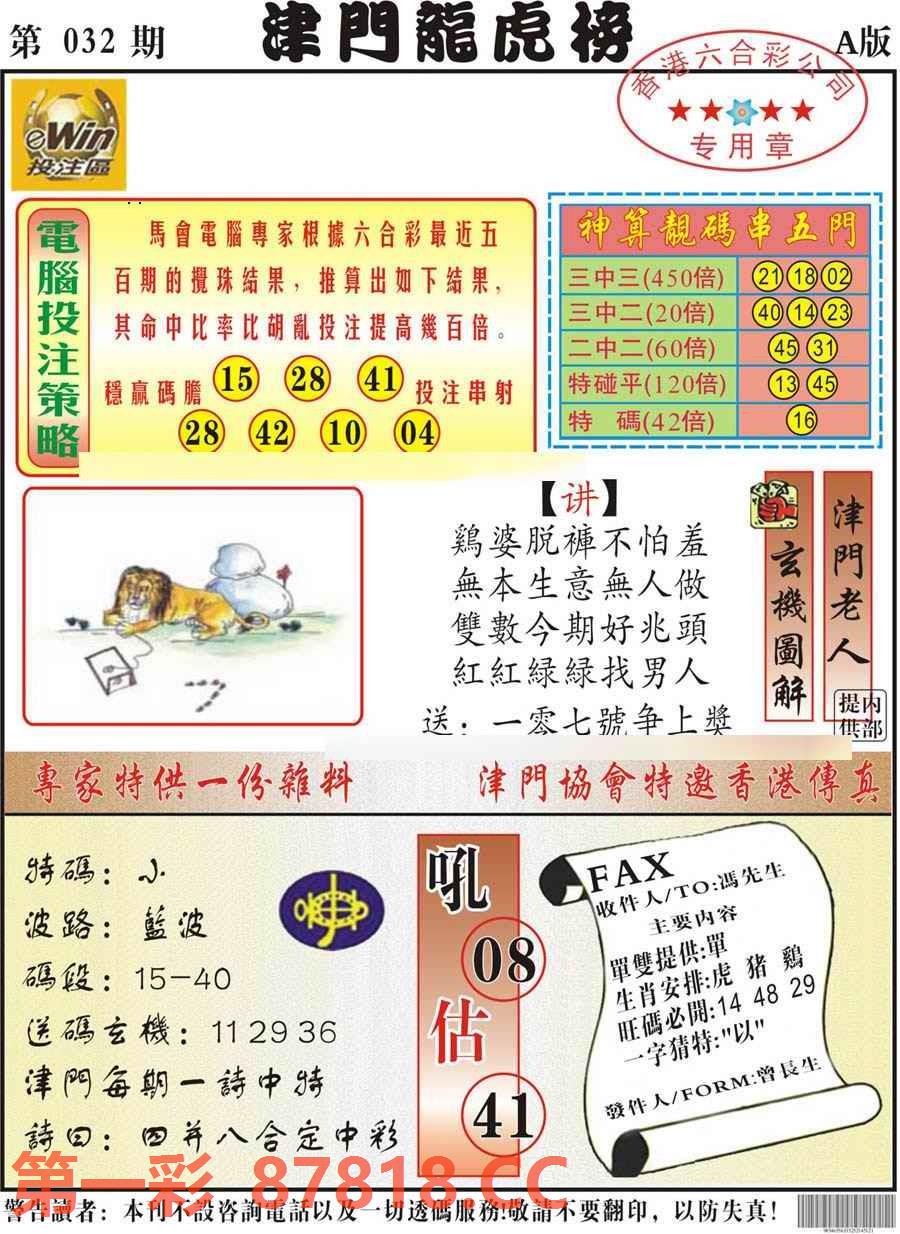 第 032 期
津門龍虎榜
A版
香港六合彩公司
专用章
eWin
投注區
電腦投注策略
馬會電腦專家根據六合彩最近五
百期的攪珠結果，推算出如下結果，
其命中比率比胡亂投注提高幾百倍。
穩贏碼膽 15 28 41 投注串射
28 42 10 04
神算靚碼串五門
三中三(450倍) 21 18 02
三中二(20倍) 40 14 23
二中二(60倍) 45 31
特碰平(120倍) 13 45
特 碼(42倍) 16
【讲】
鷄婆脱褲不怕羞
無本生意無人做
雙數今期好兆頭
紅紅緑緑找男人
送：一零七號争上獎
玄機圖解
津門老人
内部提供
專家特供一份雜料
津門協會特邀香港傳真
特碼：小
波路：藍波
碼段：15-40
送碼玄機：11 29 36
津門每期一詩中特
詩曰：四并八合定中彩
吼
08
估
41
FAX
收件人/TO:馮先生
主要内容
單雙提供:單
生肖安排:虎 猪 鷄
旺碼必開:14 48 29
一字猜特:"以"
發件人/FORM:曾長生
第一彩 87818.CC
警告讀者：本刊不設咨詢電話以及一切透碼服務!敬請不要翻印，以防失真！